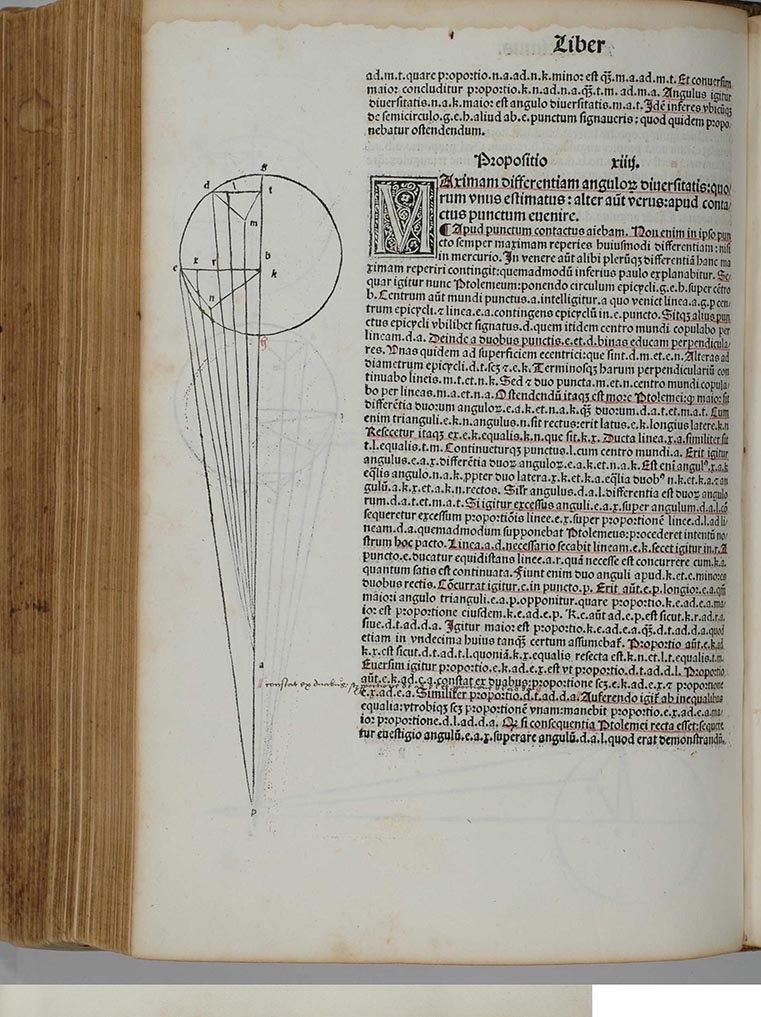 Liber
ad.m.t.quare ꝓportio.n.a.ad.n.k.minor est q̄ꝫ.m.a.ad.m.t. Et conuersim
maior concluditur ꝓportio.k.n.ad.n.a.q̄ꝫ.t.m. ad.m.a. Angulus igitur
diuersitatis.n.a.k.maior est angulo diuersitatis.m.a.t. Idē inferes vbicūqꝫ
de semicirculo.g.e.h.aliud ab.e.punctum signaueris: quod quidem propo
nebatur ostendendum.
Propositio xiiij.
MAximam differentiam anguloꝝ diuersitatis:quo/
rum vnus estimatus: alter aūt verus:apud conta/
ctus punctum euenire.
¶ Apud punctum contactus aiebam. Non enim in ipso pun
cto semper maximam reperies huiusmodi differentiam: nisi
in mercurio. In venere aūt alibi plerūqꝫ differentiā hanc ma
ximam reperiri contingit:quemadmodū inferius paulo explanabitur. Se
quar igitur nunc Ptolemeum:ponendo circulum epicycli.g.e.h.super cētro
b. Centrum aūt mundi punctus.a.intelligitur.a quo veniet linea.a.g.p cen
trum epicycli.⁊ linea.e.a.contingens epicyclū in.e.puncto. Sitqꝫ alius pun
ctus epicycli vbilibet signatus.d.quem itidem centro mundi copulabo per
lineam.d.a. Deinde a duobus punctis.e.et.d.binas educam perpendicula/
res. Vnas quidem ad superficiem ecentrici:que sint.d.m.et.e.n. Alteras ad
diametrum epicycli.d.t.scꝫ ⁊.e.k. Terminosqꝫ harum perpendiculariū con
tinuabo lineis.m.t.et.n.k. Sed ⁊ duo puncta.m.et.n.centro mundi copula/
bo per lineas.m.a.et.n.a. Ostendendū itaqꝫ est more Ptolemei:ꝙ maior sit
differētia duorum anguloꝝ.e.a.k.et.n.a.k.q̄ꝫ duorum.d.a.t.et.m.a.t. Cum
enim trianguli.e.k.n.angulus.n.sit rectus:erit latus.e.k.longius latere.k.n
Resecetur itaqꝫ ex.e.k.equalis.k.n.que sit.k.x. Ducta linea.x.a.similiter sit
t.l.equalis.t.m. Continueturqꝫ punctus.l.cum centro mundi.a. Erit igitur
angulus.e.a.x.differētia duoꝝ anguloꝝ.e.a.k.et.n.a.k. Est eni angulꝰ.x.a.k
eq̄lis angulo.n.a.k.ꝓpter duo latera.x.k.et.k.a.eq̄lia duobꝰ n.k.et.k.a.⁊ an
gulū.a.k.x.et.a.k.n.rectos. Silr angulus.d.a.l.differentia est duoꝝ angulo
rum.d.a.t.et.m.a.t. Si igitur excessus anguli.e.a.x.super angulum.d.a.l.cō
sequeretur excessum ꝓportiōis linee.e.x.super ꝓportionē linee.d.l.ad li/
neam.d.a.quemadmodum supponebat Ptolemeus:procederet intentū no/
strum hoc pacto. Linea.a.d.necessario secabit lineam.e.k.secet igitur in.r. A
puncto.e.ducatur equidistans linee.a.r.quā necesse est concurrere cum.k.a.
quantum satis est continuata. Fiunt enim duo anguli apud.k.et.e.minores
duobus rectis. Cōcurrat igitur.e.in puncto.p. Erit aūt.e.p.longior.e.a.qm̄
maiori angulo trianguli.e.a.p.opponitur.quare ꝓportio.k.e.ad.e.a.ma/
ior est ꝓportione eiusdem.k.e.ad.e.p. K.e.aūt ad.e.p.est sicut.k.r.ad.r.a.
siue.d.t.ad.d.a. Igitur maior est ꝓportio.k.e.ad.e.a.q̄ꝫ.d.t.ad.d.a.quod
etiam in vndecima huius tanqꝫ certum assumebat̄. Proportio aūt.e.k.ad
k.x.est sicut.d.t.ad.t.l.quoniā.k.x.equalis resecta est.k.n.et.l.t.equalis.t.m.
Euersim igitur ꝓportio.e.k.ad.e.x.est vt ꝓportio.d.t.ad.d.l. Proportio
aūt.e.k.ad.e.a.constat ex duabus:proportione scꝫ.e.k.ad.e.x.⁊ ꝓportione
e.x.ad.e.a. Similiter ꝓportio.d.t.ad.d.a. Auferendo igit̄ ab inequalibus
equalia:vtrobiqꝫ scꝫ ꝓportionē vnam:manebit ꝓportio.e.x.ad.e.a.ma/
ior ꝓportione.d.l.ad.d.a. Qꝫ si consequentia Ptolemei recta esset:seque
tur euestigio angulū.e.a.x.superare angulū.d.a.l.quod erat demonstrandū.
g
d t
m
x r b
e k
n
h
a
constat ex duabus
p